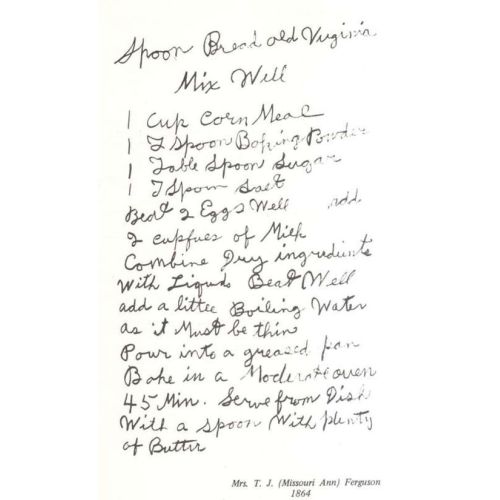 Spoon Bread old Virginia
Mix Well
1 Cup Corn Meal
1 T Spoon Baking Powder
1 Table Spoon Sugar
1 T Spoon Salt
Beat 2 Eggs Well add
2 cupfues of Milk
Combine Dry ingredients
With Liquids Beat Well
add a little Boiling Water
as it Must be thin
Pour into a greased pan
Bake in a Moderate oven
45 Min. Serve from Dish
With a spoon With plenty
of Butter
Mrs. T. J. (Missouri Ann) Ferguson
1864